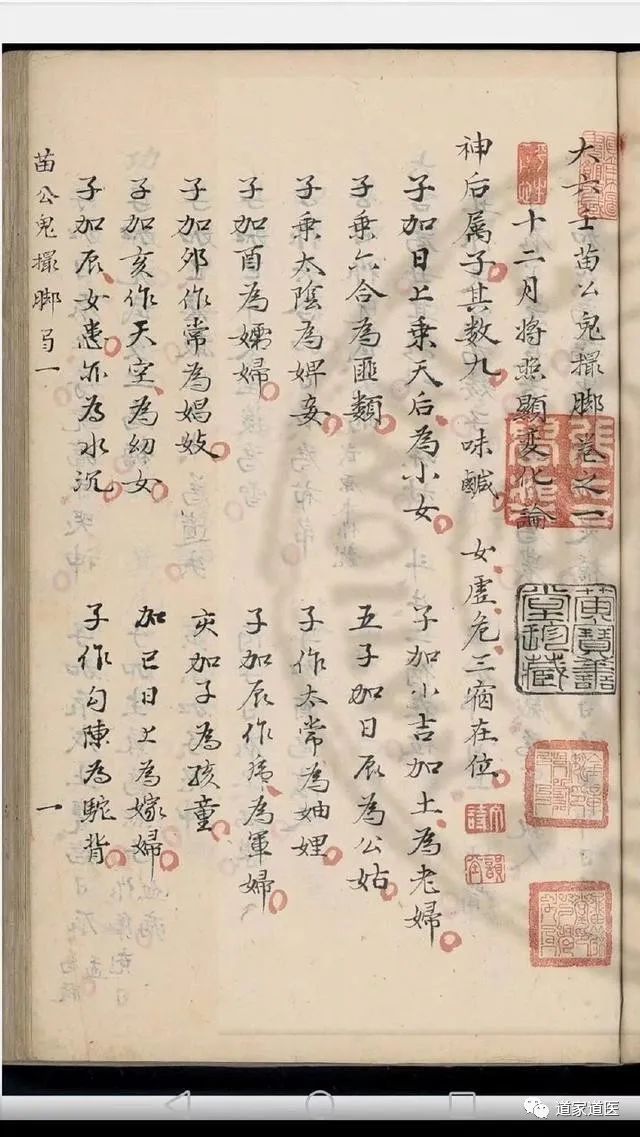 大六壬苗公鬼撮脚卷之一
十二月将照顯變化論
神后属子其数九 味鹹 女虚危三宿在位
子加日上乘天后為小女 子加小吉加土為老婦
子乘六合為匪類 五子加日辰為公姑
子乘太陰為婢妾 子作太常為妯娌
子加酉為孀婦 子加辰作為軍婦
子加夘作常為娼妓 亥加子為孩童
子加亥作天空為幼女 加已日上為嫁婦
子加辰女患亦為水沉 子作勾陳為駝背
苗公鬼撮脚 一 一
堂珍藏
道家道医